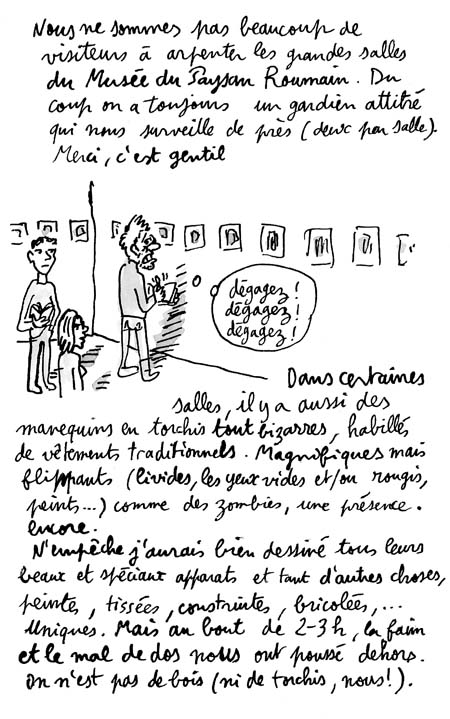 Nous ne sommes pas beaucoup de
visiteurs à arpenter les grandes salles
du Musée du Paysan Roumain. Du
coup on a toujours un gardien attitré
qui nous surveille de près (deux par salle).
Merci, c'est gentil
dégagez !
dégagez !
dégagez !
Dans certaines
salles, il y a aussi des
manequins en torchis tout bizarres, habillés
de vêtements traditionnels. Magnifiques mais
flippants (livides, les yeux vides et/ou rougis,
peints...) comme des zombies, une présence.
encore.
N'empêche j'aurais bien dessiné tous leurs
beaux et spéciaux apparats et tant d'autres choses,
peintes, tissées, construites, bricolées,...
Uniques. Mais au bout de 2-3h, la faim
et le mal de dos nous ont poussé dehors.
On n'est pas de bois (ni de torchis, nous!).